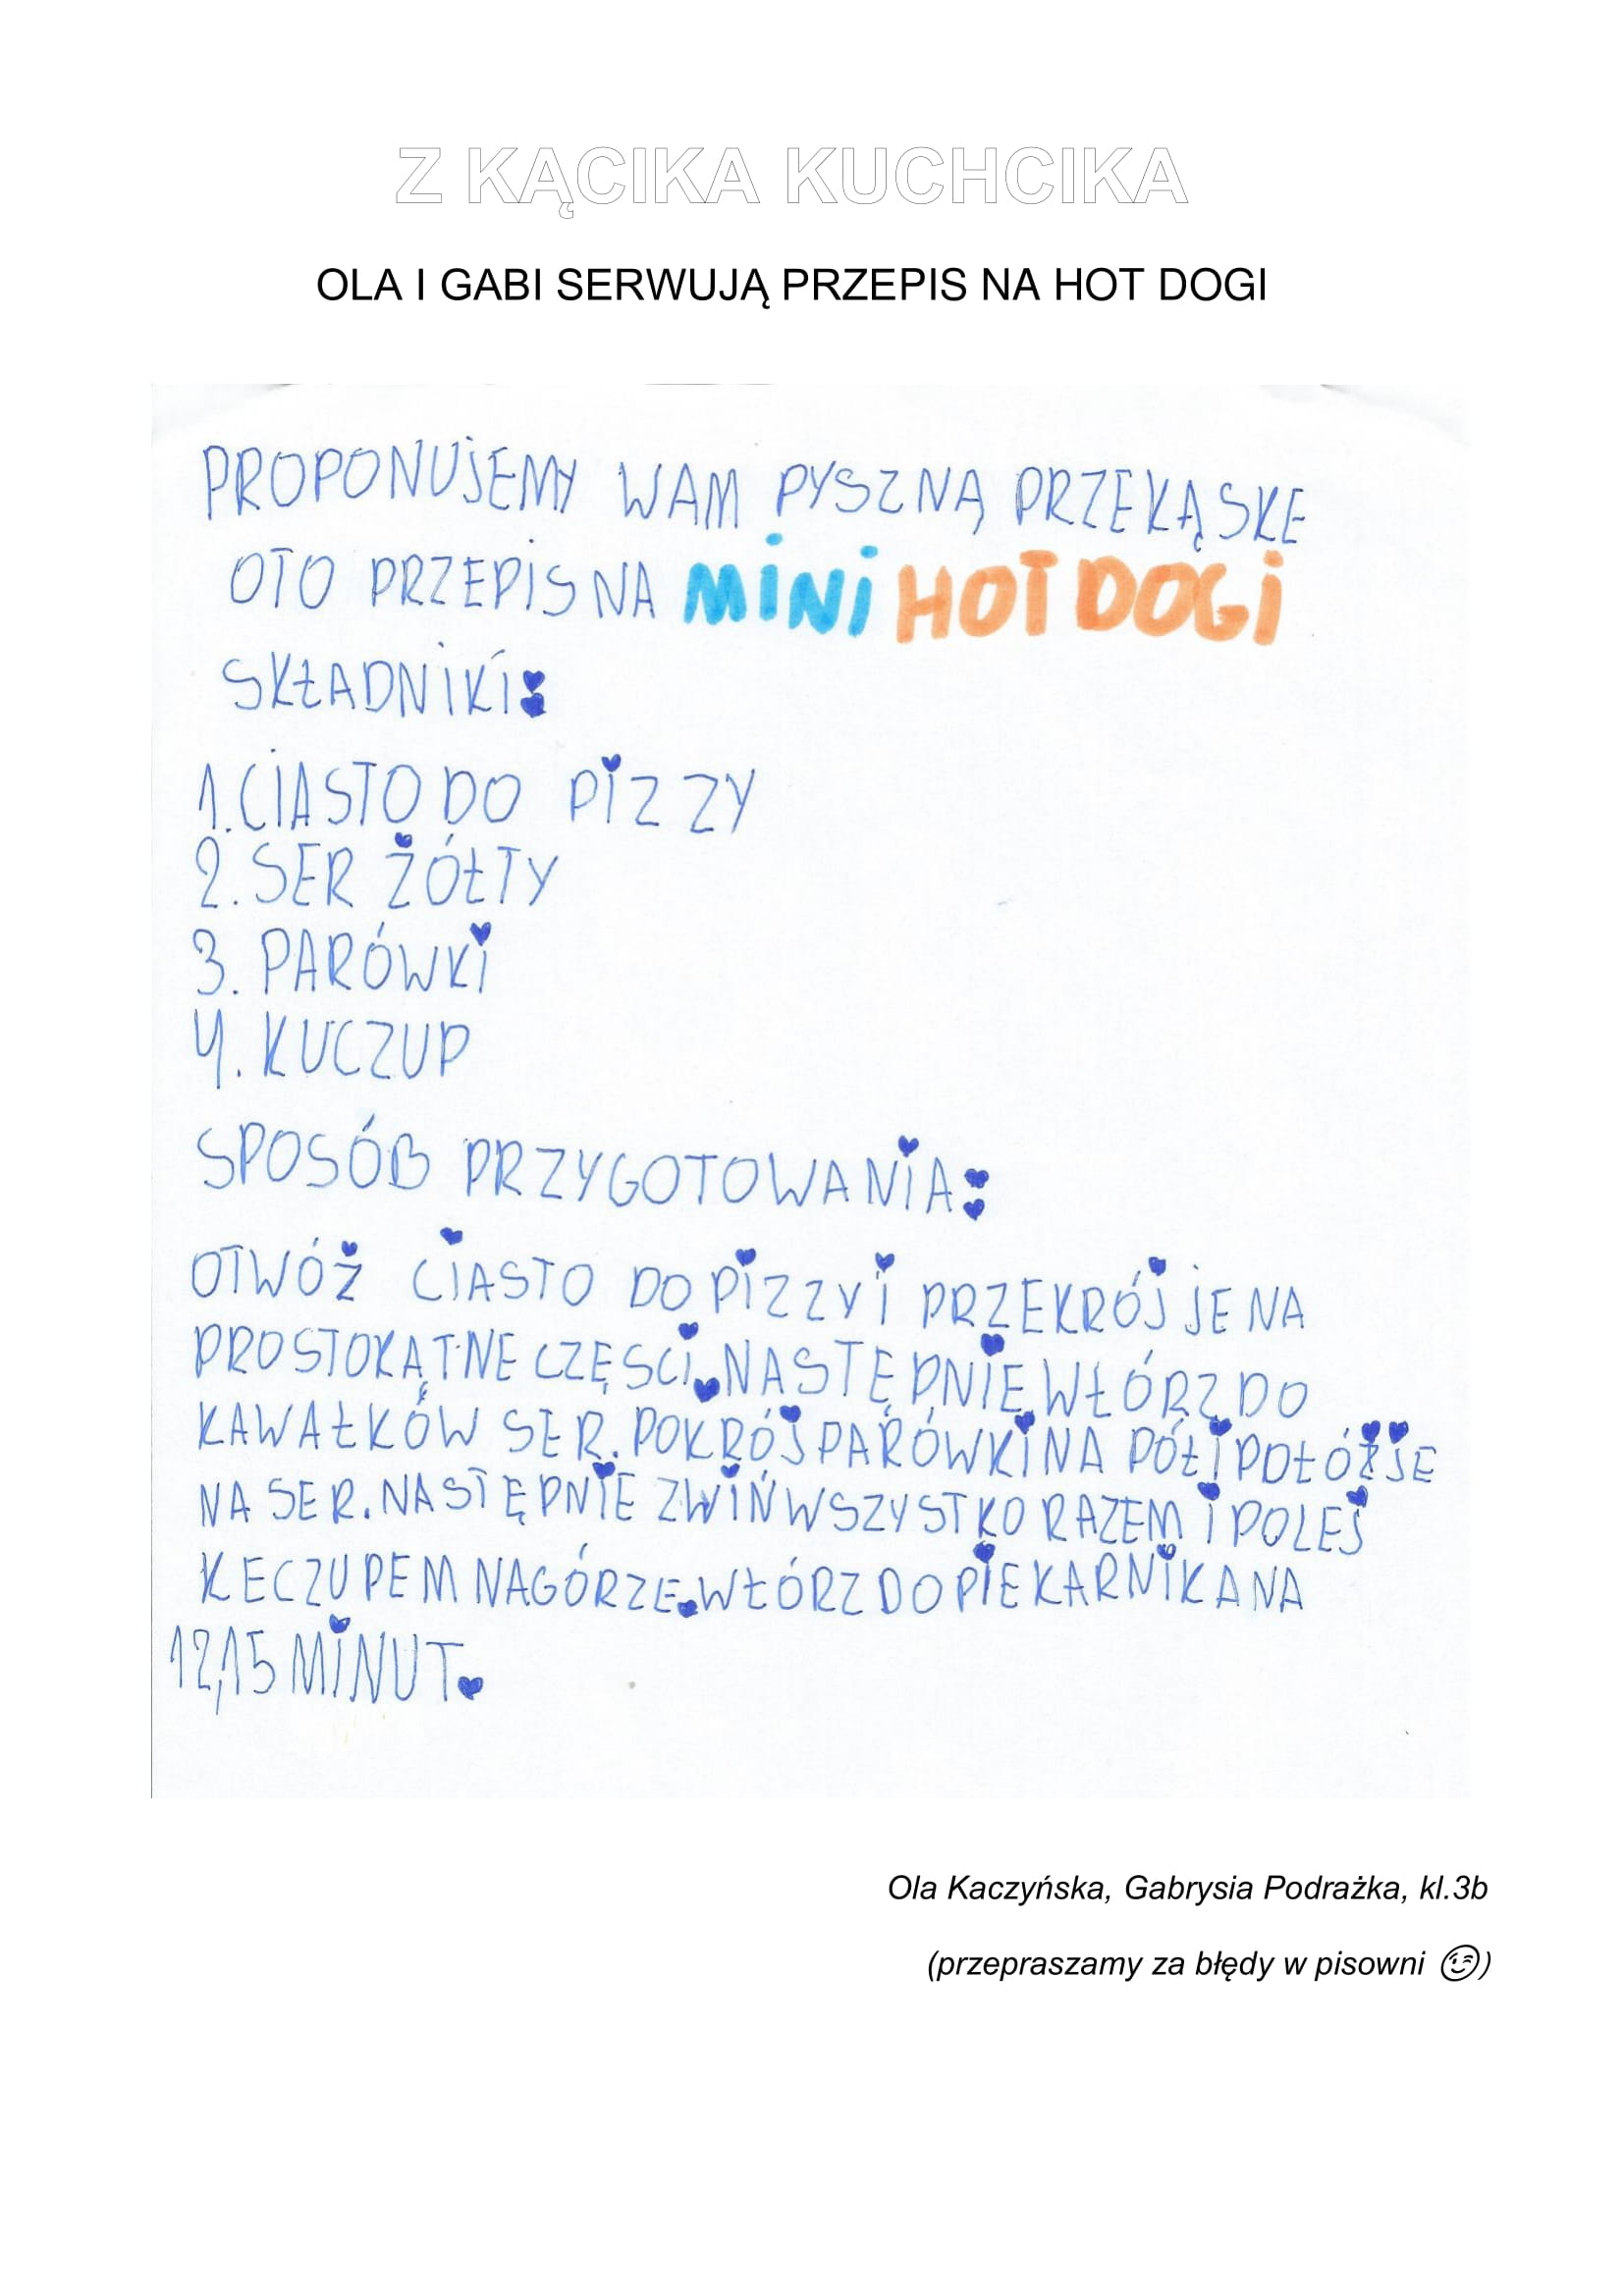 Z KĄCIKA KUCHCIKA
OLA I GABI SERWUJĄ PRZEPIS NA HOT DOGI
PROPONUJEMY WAM PYSZNĄ PRZEKĄSKE
OTO PRZEPIS NA MINI HOT DOGI
SKŁADNIKI:
1. CIASTO DO PIZZY
2. SER ŻÓŁTY
3. PARÓWKI
4. KUCZUP
SPOSÓB PRZYGOTOWANIA:
OTWÓŻ CIASTO DO PIZZY I PRZEKRÓJ JE NA
PROSTOKĄTNE CZĘSCI. NASTĘPNIE WŁÓRZ DO
KAWAŁKÓW SER. POKRÓJ PARÓWKI NA PÓŁ I POŁÓŻ JE
NA SER. NASTĘPNIE ZWIŃ WSZYSTKO RAZEM I POLEJ
KECZUPEM NA GÓRZE. WŁÓRZ DO PIEKARNIKA NA
12,15 MINUT.
Ola Kaczyńska, Gabrysia Podrażka, kl.3b
(przepraszamy za błędy w pisowni 😉)